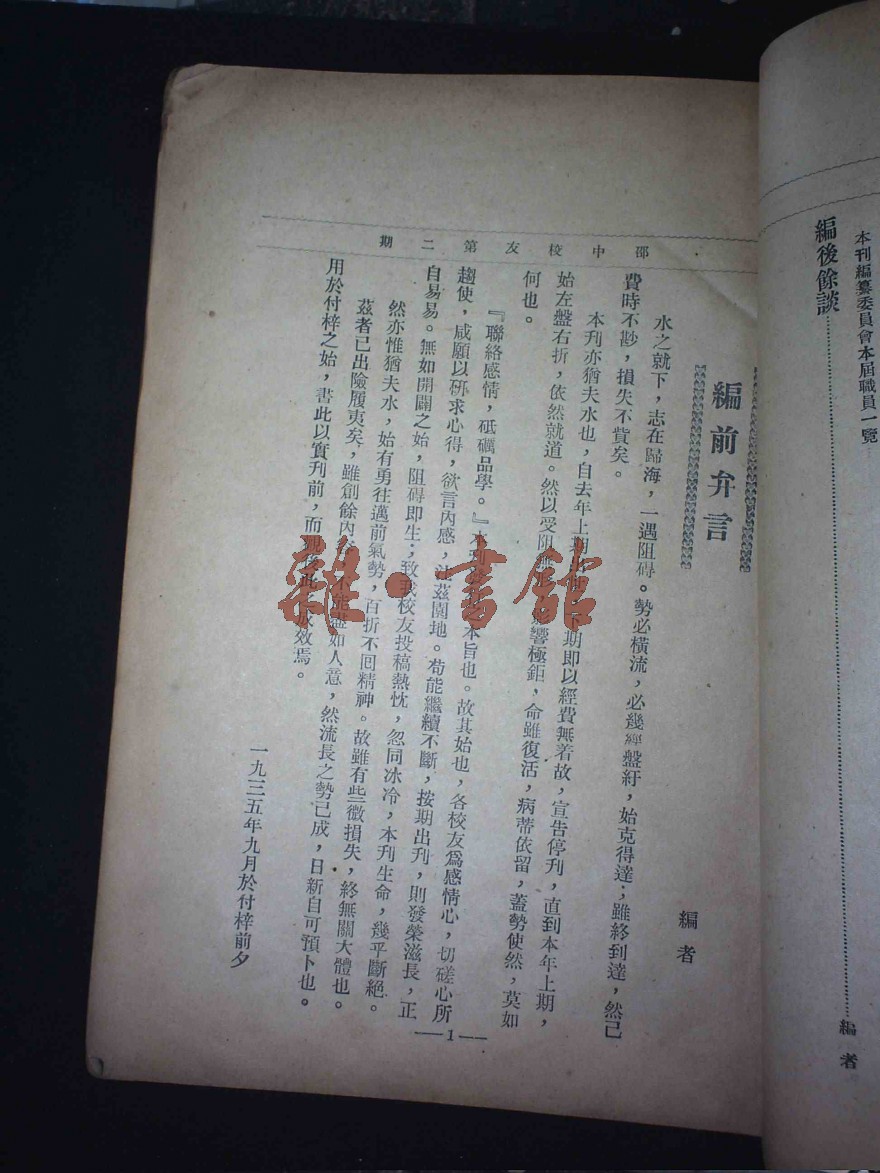 本刊編纂委員會本屆職員一覽
編後餘談……編者
邵中校友第二期
編前弁言
編者
水之就下，志在歸海，一遇阻碍。勢必橫流，必幾經盤紆，始克得達；雖終到達，然已
費時不尠，損失不貲矣。
本刊亦猶夫水也，自去年上期 下期即以經費無着故，宣告停刋，直到本年上期，
始左盤右折，依然就道。然以受阻 影響極鉅，命雖復活，病蒂依留，蓋勢使然，莫如
何也。
『聯絡感情，砥礪品學。』本刊 本旨也。故其始也，各校友爲感情心，切磋心所
趨使，咸願以研求心得，欲言內感，注茲園地。苟能繼續不斷，按期出刋，則發榮滋長，正
自易易。無如開闢之始，阻碍即生；致我校友投稿熱忱，忽同冰冷，本刋生命，幾乎斷絕。
然亦惟猶夫水，始有勇往邁前氣勢，百折不回精神。故雖有些微損失，終無關大體也。
茲者已出險履夷矣，雖創餘內容，不能盡如人意，然流長之勢已成，日新自可預卜也。
用於付梓之始，書此以實刋前，而觀後此之成效焉。
一九三五年九月於付梓前夕
—1—
雜·書館